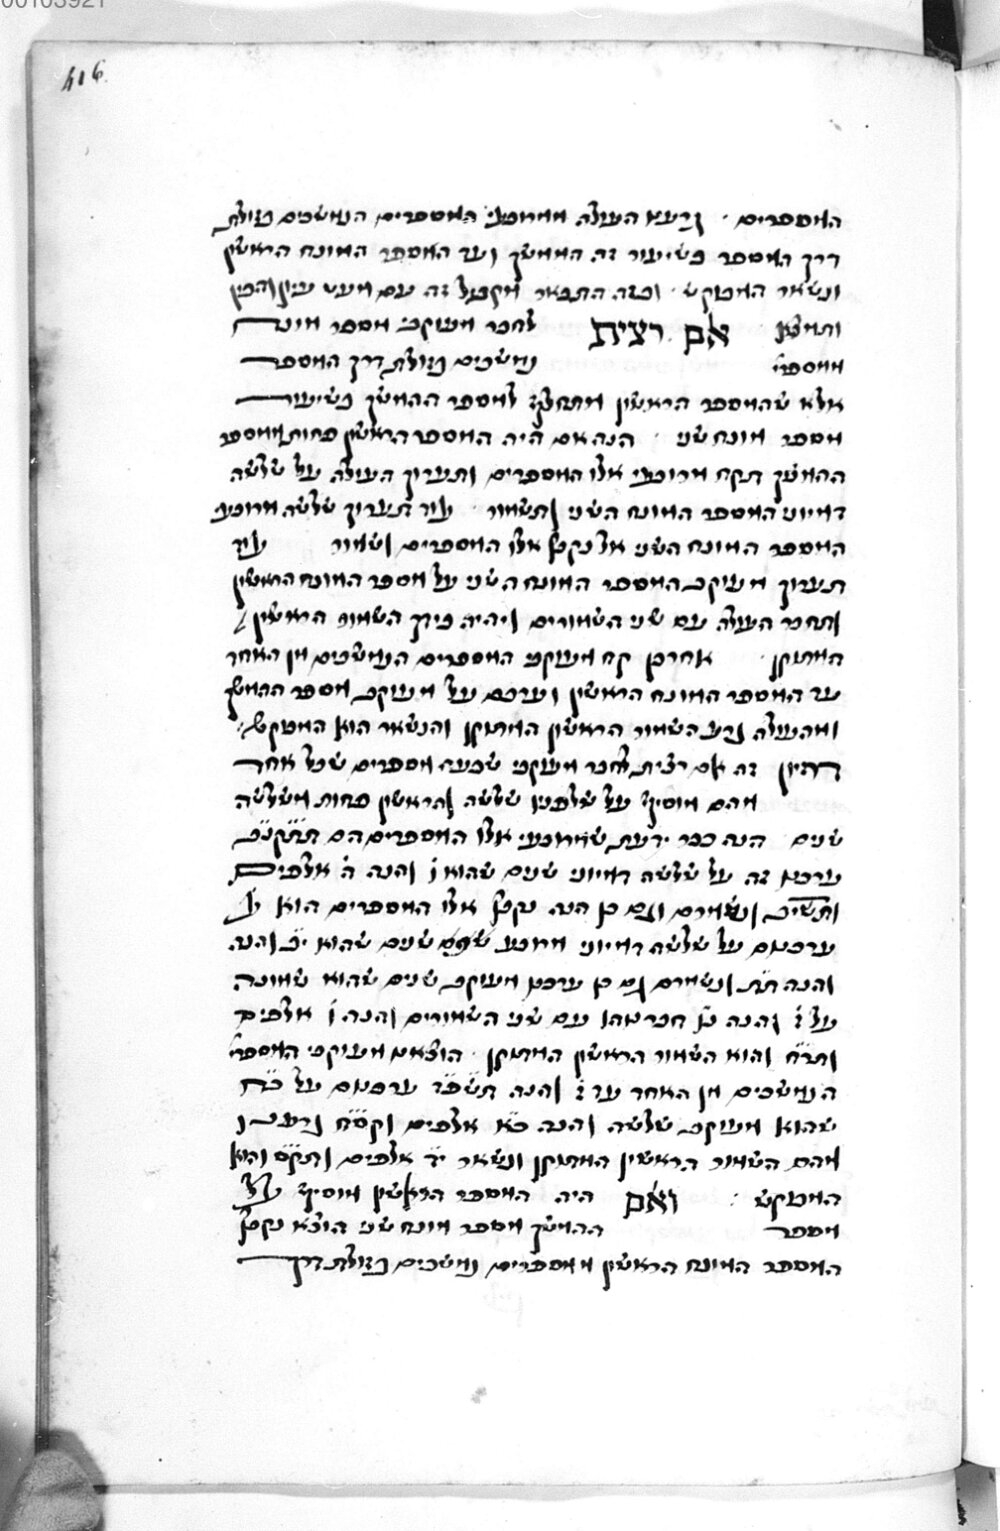 416
המספרים · וגרעא העולה ממרובעי המספרים הנמשכים בזולת
דרך המספר בשיעור זה הממשך ועד המספר המונח הראשון
ונשאר המבוקש · ובזה התבאר מקבול זה עם מעט עיון והבן
ותמצא אם רצית לחבר מעוקבי מספר מונח
ממספרי נמשכים בזולת דרך המספר
אלא שהמספר הראשון מתחלף למספר ההמשך בשיעור
מספר מונח שני · הנה אם היה המספר הראשון פחות ממספר
ההמשך תקח מרובעי אלו המספרים ותערוך העולה על שלשה
דמיוני המספר המונח השני ותשמור · עוד תערוך שלשה מרובעי
המספר המונח השני אל נקבץ אלו המספרים ושמור עוד
תערוך מעוקב המספר המונח השני על מספר המונח הראשון
ותחבר העולה עם שני השמורים ויהיה בידך השמור הראשון
המתוקן · אחר כן קח מעוקבי המספרים הנמשכים מן האחד
עד המספר המונח הראשון וערכם על מעוקב מספר ההמשך
ומהעולה גרע השמור הראשון המתוקן והנשאר הוא המבוקש ·
דמיון זה אם רצית לחבר מעוקבי שבעה מספרים שכל אחד
מהם מוסיף על שלפניו שלשה והראשון פחות משלשה
שנים הנה כבר ידעת שמרובעי אלו המספרים הם
ערכם זה על שלשה דמיוני שנים שהוא ו והנה ה אלפים
ותשיב ונשמרם וגם כן הנה נקבץ אלו המספרים הוא
ערכנום על שלשה דמיוני מרובע שנים שהוא יב והנה
והנה ונשמרם גם כן ערכנו מעוקב שנים שהוא שמונה
על ז והנה נו חברנוהו עם שני השמורים והנה ו אלפים
ותרח והוא השמור הראשון המתוקן · הוצאנו מעוקבי המספרי
הנמשכים מן האחד עד ז והנה תשפד ערכנום על כז
שהוא מעוקב שלשה והנה כא אלפים וקסח גרענו
מהם השמור הראשון המתוקן ונשאר יד אלפים ותקס והוא
המבוקש · ואם היה המספר הראשון מוסיף על
מספר ההמשך מספר מונח שני הוצא נקבץ
המספר המונח הראשון ממספרים נמשכים בזולת דרך